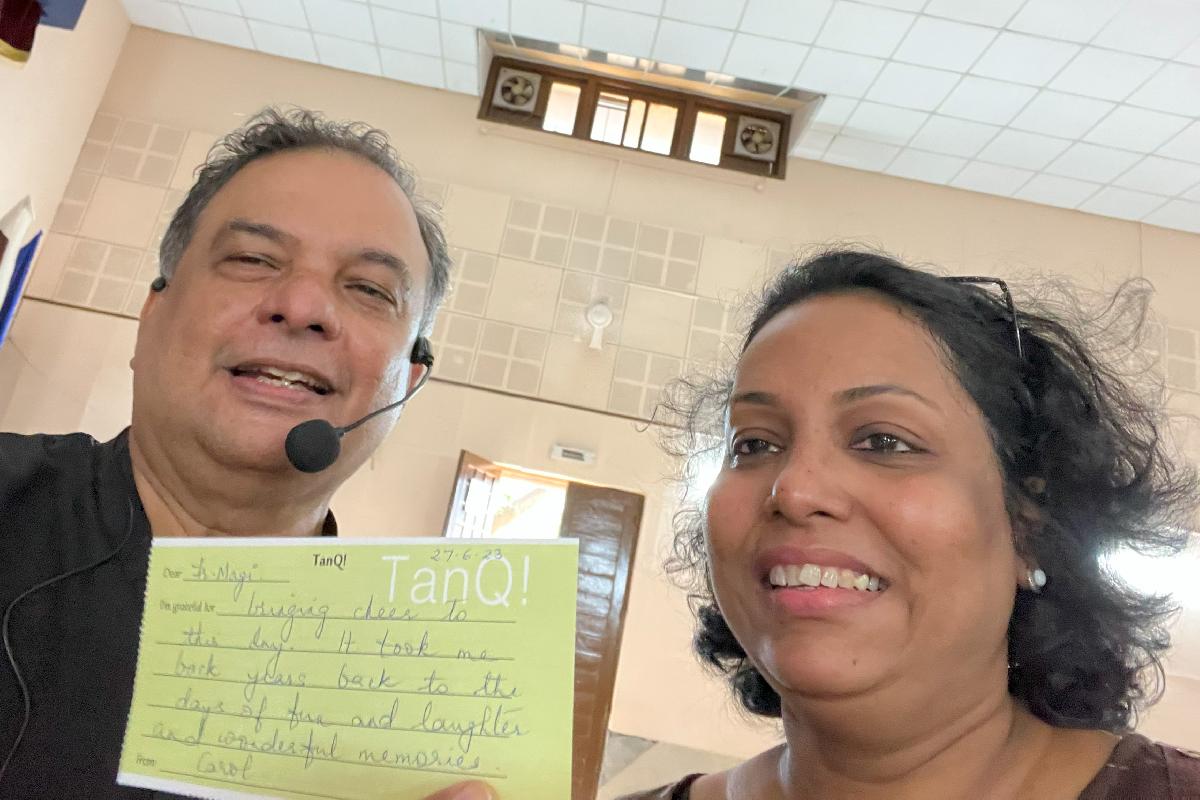 TanQ!
27-6-23
TanQ!
Dear Fr. Nagi
I'm grateful for bringing cheer to
this day. It took me
back years back to the
days of fun and laughter
and wonderful memories.
From: Carol